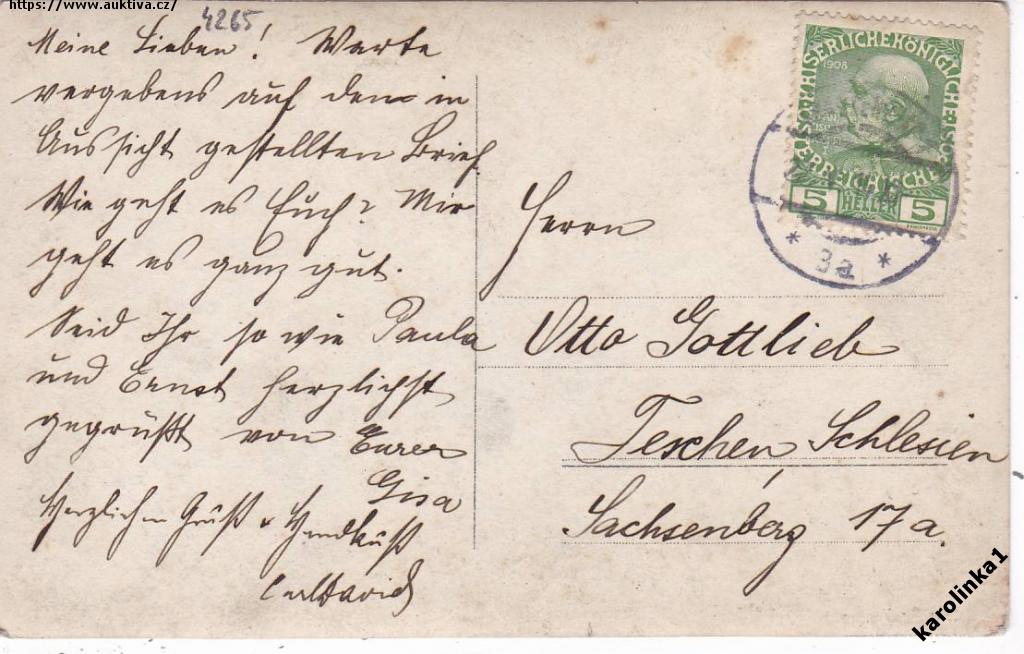 https://www.auktiva.cz/
4265
Meine Lieben! Warte
vergebens auf den in
Aussicht gestellten Brief.
Wie geht es Euch? Mir
geht es ganz gut.
Seid Ihr so wie Paula
und Ernst herzlichst
gegrüßt von Eurer
Gisa
Herzlichen Gruß u Handkuß
KAISERLICHE KÖNIGLICHE
1908
ÖSTERREICHISCHE POST
5 HELLER 5
* 3a *
Herrn
Otto Gottlieb
Teschen, Schlesien
Sachsenberg 17a.
karolinka1